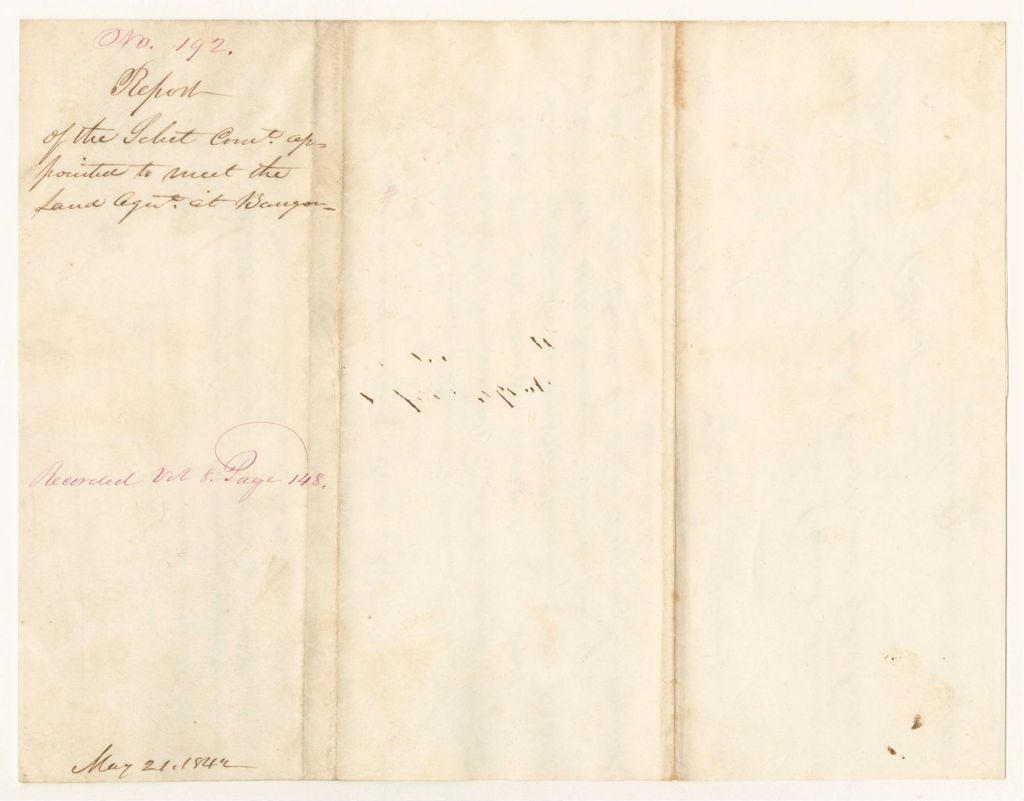 No. 192.
Report
of the Select Comt. ap-
pointed to meet the
Land Agent. at Bangor
Recorded Vol 8. Page 148.
May 21. 1842